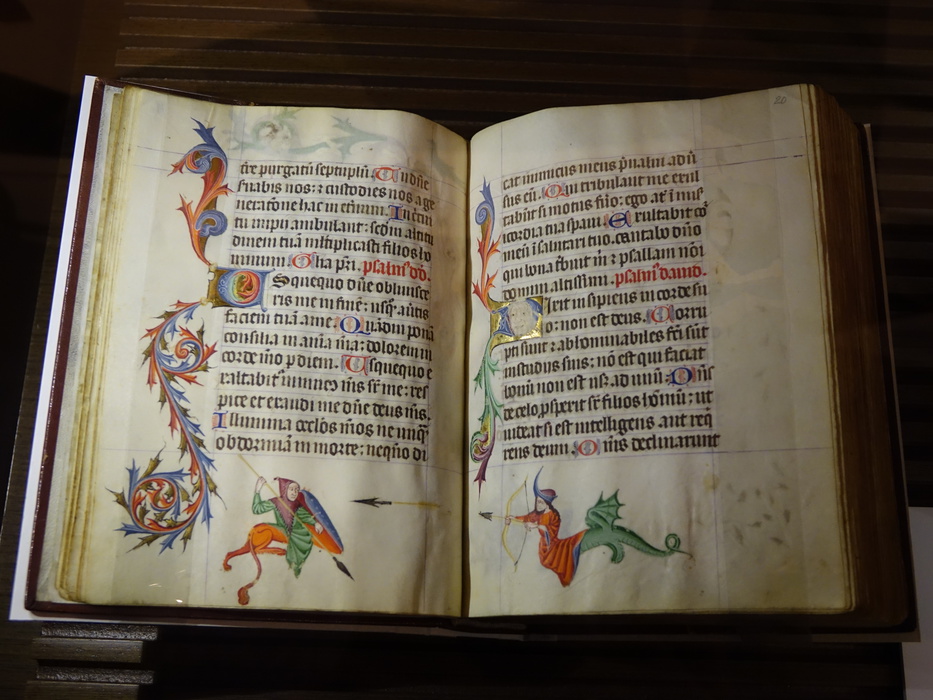 tre purgatū septuplū. Tu dn̄e
ſuabis nos: ⁊ custodies nos a ge
neratōne hac in etnum. In circū
tu impii ambulant: scdm altitu
dinem tuā mltiplicasti filios ho
minum. Gl'ia pr̄i. psalm' dd.
Usquequo dn̄e obliuisce
ris me in finē: usqꝫ quo auertis
faciem tuā a me. Quādiu ponā
consilia in aīa mea: dolorem in
corde mo p diem. Usquequo e
xaltabit' inimic' ms sr̄ me: res
pice et exaudi me dn̄e deus ms.
Illumina oclōs mōs ne unqꝫ
obdormiā in morte: nequn̄o di
20
cat inimicus meus p̄ualui adū
sus eū. Qui tribulant me exul
tabūt si motus fūo: ego aūt ī mis
icordia tua spaui. Exultabit cor
meū ī salutari tuo. cantabo dn̄o
qui bona tribuit m̄ ⁊ psallam noī
domini altissimi. psalm' dauid.
Dixit insipiens in corde su
o: non est deus. Corru
pti sunt ⁊ abhominabiles fc̄i sūt
in studiis suis: nō est qui faciat
bonū non est usqꝫ ad unū. Dn̄s
de celo pspexit sr̄ filios homīū: ut
uideat si est intelligens aut req
rens deum. Oms declinarunt